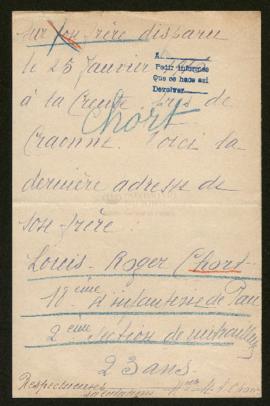 sur son frère disparu
le 25 Janvier
A
Pedir informes
Que se hace así
Devolver
à la Creute près de
Chort
Craonne. Voici la
dernière adresse de
son frère :
Louis - Roger Chort -
18ème d'infanterie de Pau
2ème Section de mitrailles
23 ans.
Respectueuses
salutations